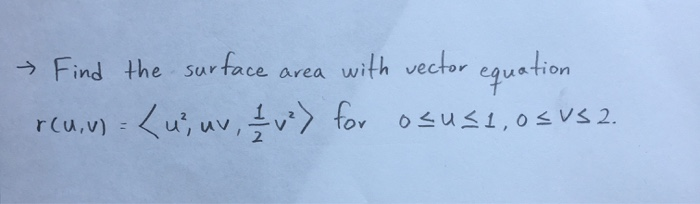 → Find the surface area with vector equation
r(u,v) = ⟨u², uv, ½v²⟩ for 0≤u≤1, 0≤v≤2.